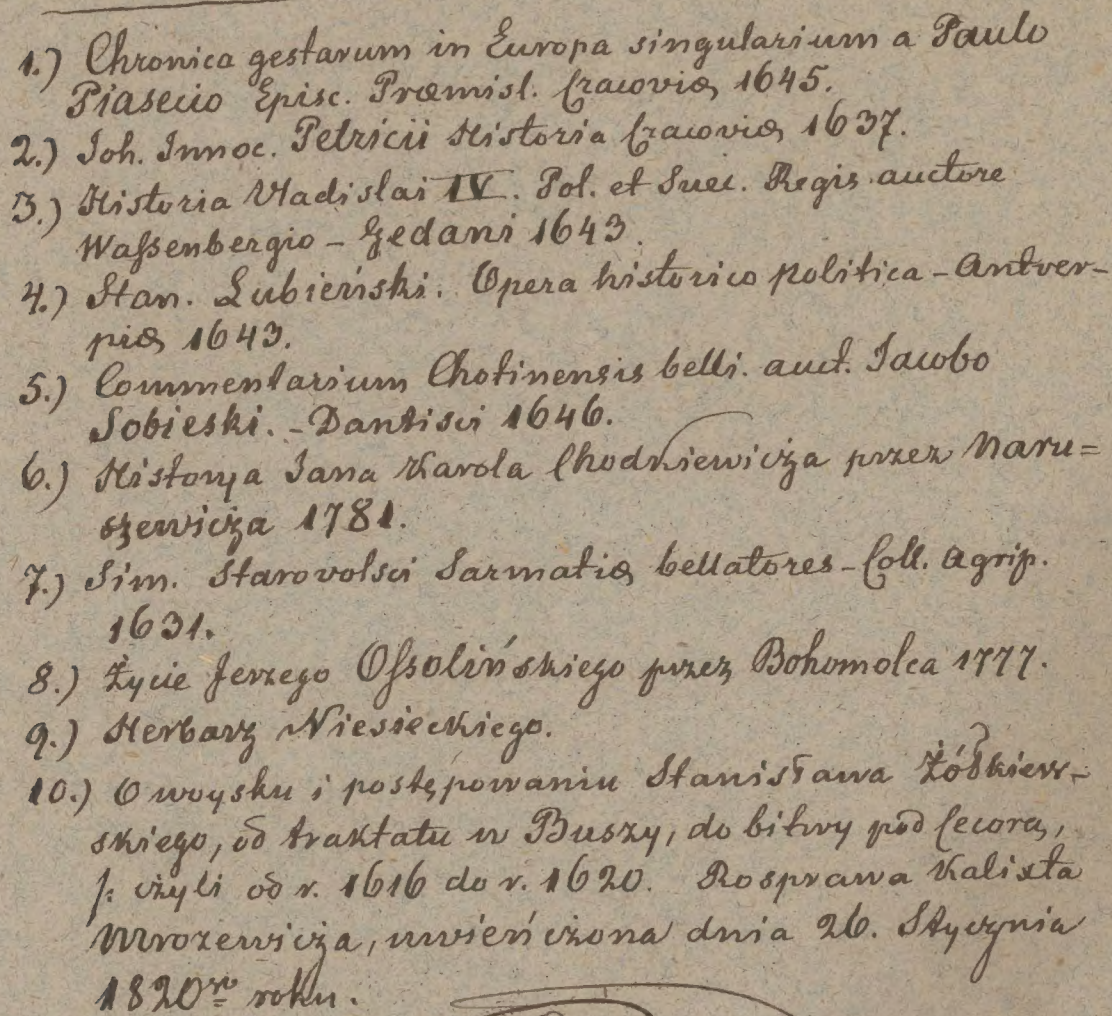 1.) Chronica gestarum in Europa singularium a Paulo
Piasecio Episc. Præmisl. Cracoviæ 1645.
2.) Joh. Innoc. Petricii Historia Cracoviæ 1637.
3.) Historia Vladislai IV. Pol. et Suec. Regis auctore
Waſsenbergio – Gedani 1643.
4.) Stan. Łubieński. Opera historico politica – Antver-
piæ 1643.
5.) Commentarium Chotinensis belli. auct. Jacobo
Sobieski. – Dantisci 1646.
6.) Historya Jana Karola Chodkiewicża przez Naru=
szewicża 1781.
7.) Sim. Starovolsci Sarmatiæ bellatores – Coll. Agrip.
1631.
8.) Życie Jerzego Oſsolińskiego przez Bohomolca 1777.
9.) Herbarz Niesieckiego.
10.) O woysku i postępowaniu Stanisława Żółkiew-
skiego, od traktatu w Buszy, do bitwy pod Cecorą,
/: cżyli od r. 1616 do r. 1620. Rosprawa Kalixta
Mrozewicża, uwieńcżona dnia 26. Stycznia
1820go roku.